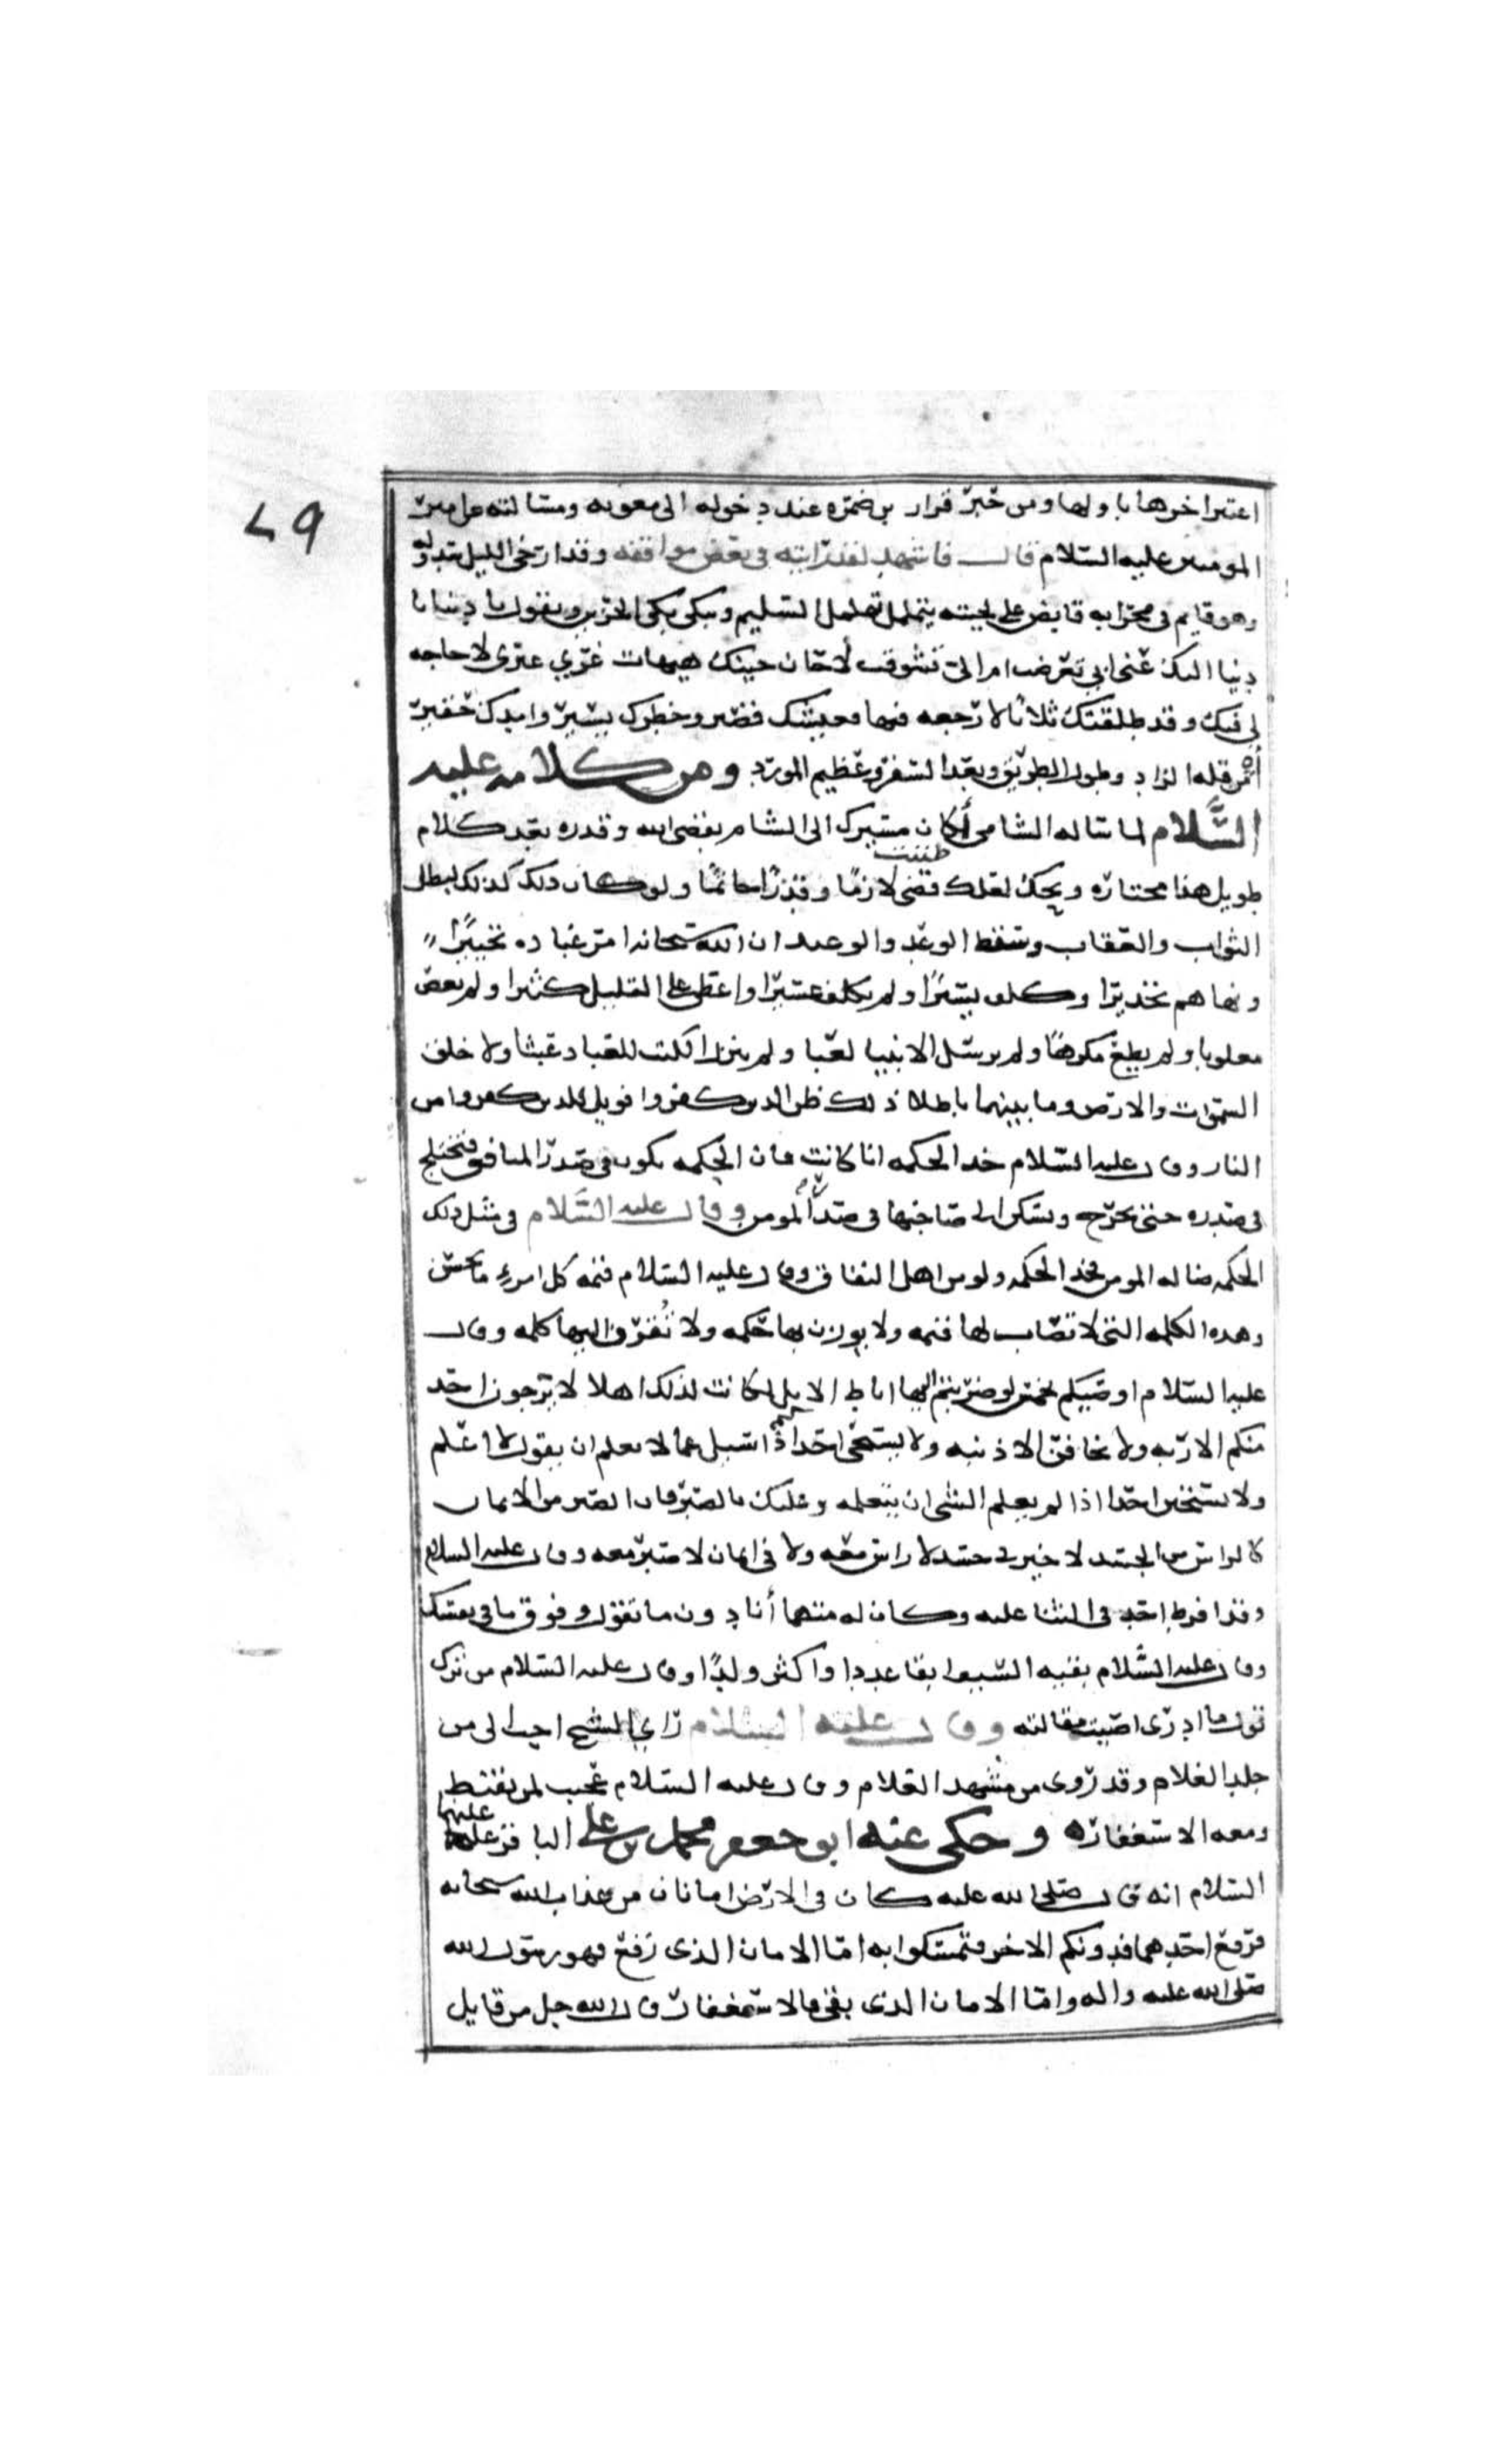 اعتبر اخرها باولها ومن خبر ضرار بن ضمره عند دخوله الى معويه ومسالته عن امير
٤٩
المومنين عليه السلام قال فاشهد لقد رايته في بعض مواقفه وقد ارخى الليل سدوله
وهو قايم في محرابه قابض على لحيته يتململ تململ السليم ويبكي بكى الحزين ويقول يا دنيا يا
دنيا اليك عني ابي تعرضت ام الي تشوقت لا حان حينك هيهات غري غيري لا حاجه
لي فيك وقد طلقتك ثلاثا لا رجعه فيها فعيشك قصير وخطرك يسير واملك حقير
اه من قله الزاد وطول الطريق وبعد السفر وعظيم المورد ومن كلامه عليه
السلام لما ساله الشامي أكان مسيرك الى الشام بقضى الله وقدره بعد كلام
طويل هذا مختاره ويحك لعلك ظننت قضى لازما وقدرا حاتما ولو كان ذلك كذلك لبطل
الثواب والعقاب وسقط الوعد والوعيد ان الله سبحانه امر عباده تخييرا
ونهاهم تحذيرا وكلف يسيرا ولم يكلف عسيرا واعطى على القليل كثيرا ولم يعص
مغلوبا ولم يطع مكرها ولم يرسل الانبيا لعبا ولم ينزل الكتب للعباد عبثا ولا خلق
السموات والارض وما بينهما باطلا ذلك ظن الذين كفروا فويل للذين كفروا من
النار وقال عليه السلام خذ الحكمه انا كانت فان الحكمه تكون في صدر المنافق فتختلج
في صدره حتى تخرج وتسكن الى صاحبها في صدر المومن وقال عليه السلام في مثل ذلك
الحكمه ضاله المومن فخذ الحكمه ولو من اهل النفاق وقال عليه السلام قيمه كل امرء ما يحسن
وهذه الكلمه التي لا تصاب لها قيمه ولا يوزن بها حكمه ولا تُقرن اليها كلمه وقال
عليه السلام اوصيكم بخمس لو ضربتم اليها اباط الابل لكانت لذلك اهلا لا يرجون احد
منكم الا ربه ولا يخافن الا ذنبه ولا يستحي احد منكم اذا سيل عما لا يعلم ان يقول لا اعلم
ولا يستحين احد اذا لم يعلم الشي ان يتعلمه وعليك بالصبر فان الصبر من الايمان
كالراس من الجسد لا خير في جسد لا راس معه ولا في ايمان لا صبر معه وقال عليه السلام
وقد افرط احد في الثنا عليه وكان له متهما أنا دون ما تقول وفوق ما في نفسك
وقال عليه السلام بقيه السيف ابقا عددا واكثر ولدًا وقال عليه السلام من ترك
قول ما ادري اصيبت مقالته وقال عليه السلام راي الشيخ احب الى من
جلد الغلام وقد روى من مشهد الغلام وقال عليه السلام عجبت لمن يقنط
ومعه الاستغفار وحكى عنه ابو جعفر محمد بن علي الباقر عليهما
السلام انه قال صلى الله عليه كان في الارض امانان من عذاب الله سبحانه
فرفع احدهما فدونكم الاخر فتمسكوا به اما الامان الذي رفع فهو رسول الله
صلى الله عليه واله واما الامان الذي بقي فالاستغفار قال الله جل من قايل